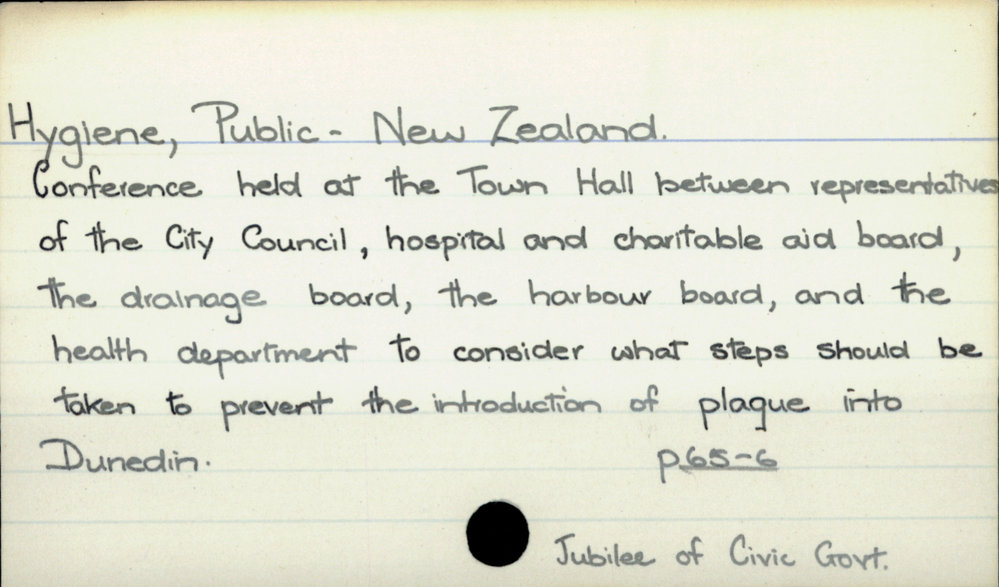 Hygiene, Public - New Zealand.
Conference held at the Town Hall between representatives
of the City Council, hospital and charitable aid board,
the drainage board, the harbour board, and the
health department to consider what steps should be
taken to prevent the introduction of plague into
Dunedin. p65-6
Jubilee of Civic Govt.